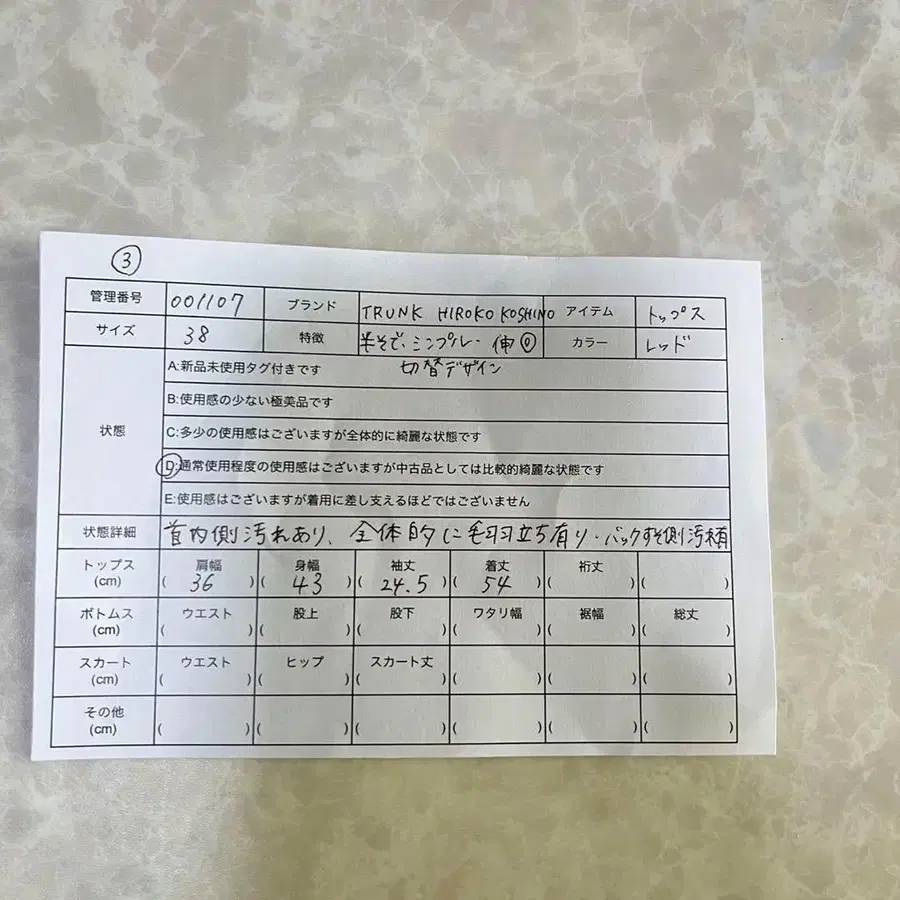 ③
管理番号 001107 ブランド TRUNK HIROKO KOSHINO アイテム トップス
サイズ 38 特徴 半そで、シンプル・伸◎ カラー レッド
切替デザイン
状態
A:新品未使用タグ付きです
B:使用感の少ない極美品です
C:多少の使用感はございますが全体的に綺麗な状態です
D:通常使用程度の使用感はございますが中古品としては比較的綺麗な状態です
E:使用感はございますが着用に差し支えるほどではございません
状態詳細 首内側汚れあり、全体的に毛羽立ち有り・バックすそ側汚れ有
トップス 肩幅 身幅 袖丈 着丈 裄丈
(cm) (36) (43) (24.5) (54) ( ) ( )
ボトムス ウエスト 股上 股下 ワタリ幅 裾幅 総丈
(cm) ( ) ( ) ( ) ( ) ( ) ( )
スカート ウエスト ヒップ スカート丈
(cm) ( ) ( ) ( ) ( ) ( ) ( )
その他
(cm) ( ) ( ) ( ) ( ) ( ) ( )